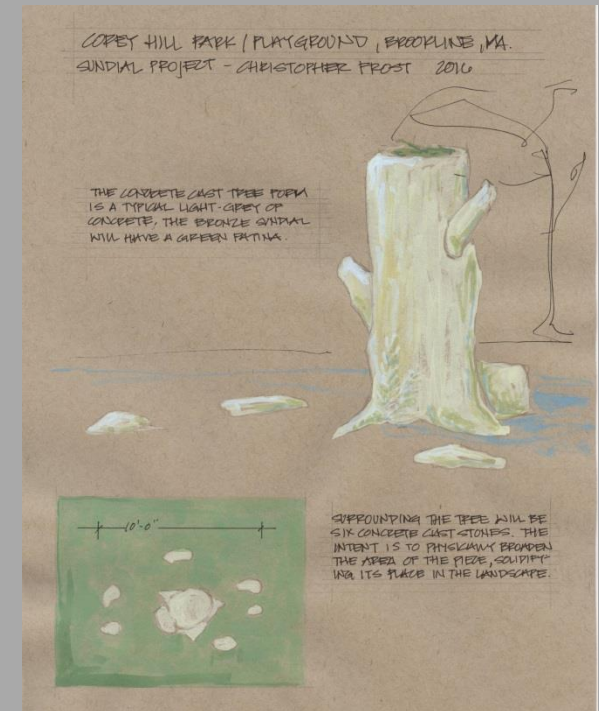 COREY HILL PARK / PLAYGROUND, BROOKLINE, MA.
SUNDIAL PROJECT - CHRISTOPHER FROST 2016
THE CONCRETE CAST TREE FORM
IS A TYPICAL LIGHT-GREY OF
CONCRETE, THE BRONZE SUNDIAL
WILL HAVE A GREEN PATINA.
10'-0"
SURROUNDING THE TREE WILL BE
SIX CONCRETE CAST STONES. THE
INTENT IS TO PHYSICALLY BROADEN
THE AREA OF THE PIECE, SOLIDIFY-
ING ITS PLACE IN THE LANDSCAPE.